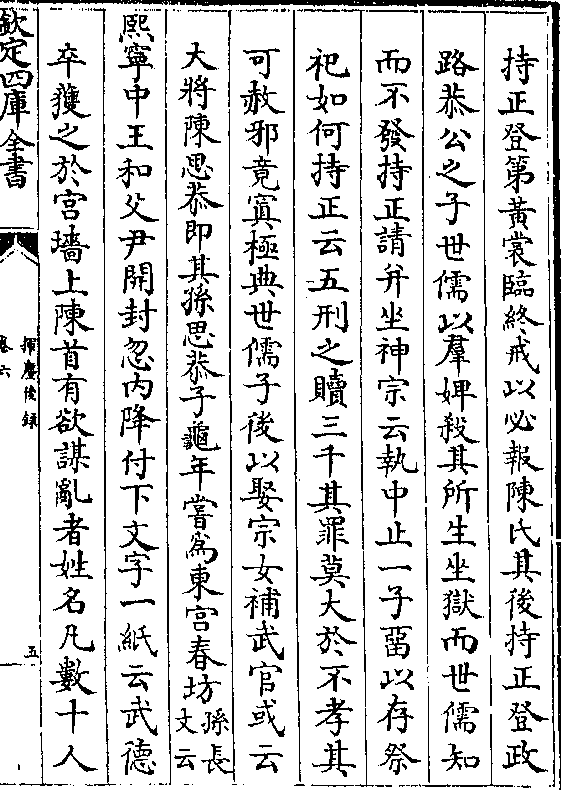 持正登第黃裳臨終戒以必報陳氏其後持正登政
路恭公之子世儒以羣婢殺其所生坐獄而世儒知
而不發持正請并坐神宗云執中止一子畱以存祭
祀如何持正云五刑之贖三千其罪莫大於不孝其
可赦邪竟寘極典世儒子後以娶宗女補武官或云
大將陳思恭即其孫思恭子龜年嘗爲東宮春坊孫長
文云
熙寧中王和父尹開封忽内降付下文字一紙云武德
卒獲之於宫墻上陳首有欲謀亂者姓名凡數十人
欽定四庫全書
揮麈後録
卷六
五